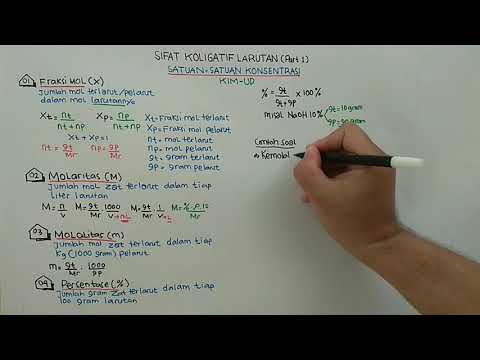 SIFAT KOLIGATIF LARUTAN (Part 1)
SATUAN-SATUAN KONSENTRASI
KIM-UD
01 Fraksi MOL (X)
Jumlah mol terlarut/pelarut
dalam mol larutannya
Xt = nt / nt + np Xp = np / nt + np
Xt + Xp = 1
nt = gt / Mr np = gp / Mr
Xt = Fraksi mol terlarut
Xp = Fraksi mol pelarut
nt = mol terlarut
np = mol pelarut
gt = gram terlarut
gp = gram pelarut
02 Molaritas (M)
Jumlah mol zat terlarut dalam tiap
liter larutan
M = n / V M = gt / Mr · 1000 / V → mL M = gt / Mr · 1 / V → L M = % · ρ · 10 / Mr
03 MOLALitas (m)
Jumlah mol zat terlarut dalam tiap
Kg (1000 gram) pelarut
m = gt / Mr · 1000 / gp
04 Persentase (%)
Jumlah gram zat terlarut dalam tiap
100 gram larutan
% = gt / gt + gp × 100%
misal NaOH 10%
gt = 10 gram
gp = 90 gram
Contoh soal
Kemolal